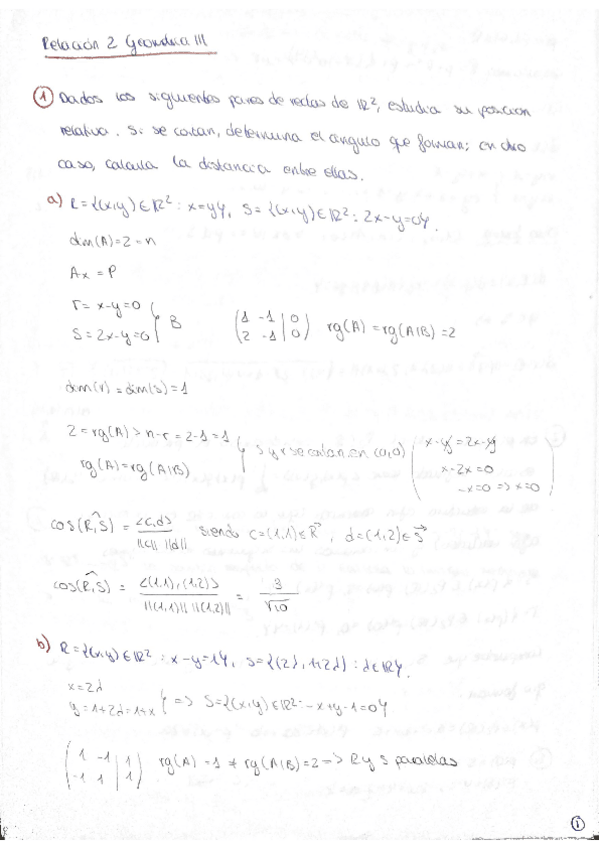 Relación 2 Geometría III
① Dados los siguientes pares de rectas de ℝ², estudia su posición
relativa. Si se cortan, determina el ángulo que forman; en otro
caso, calcula la distancia entre ellas.
a) R={(x,y)∈ℝ²: x=y}, S={(x,y)∈ℝ²: 2x-y=0}.
dim(A)=2=n
Ax=P
r= x-y=0
s= 2x-y=0 } B (1 -1 | 0 / 2 -1 | 0) rg(A)=rg(A|B)=2
dim(r)=dim(s)=1
2=rg(A)>n-r=2-1=1
rg(A)=rg(A|B) } s y r se cortan en (0,0) (x-y=2x-y
x-2x=0
-x=0 => x=0)
cos(R,S)^ = <c,d> / ||c|| ||d|| siendo c=(1,1)∈R⃗, d=(1,2)∈S⃗
cos(R,S)^ = <(1,1),(1,2)> / ||(1,1)|| ||(1,2)|| = 3/√10
b) R={(x,y)∈ℝ²: x-y=1}, S={(2λ, 1+2λ): λ∈ℝ}.
x=2λ
y=1+2λ=1+x } => S={(x,y)∈ℝ²: -x+y-1=0}
(1 -1 | 1 / -1 1 | 1) rg(A)=1 ≠ rg(A|B)=2 => R y S paralelas
①